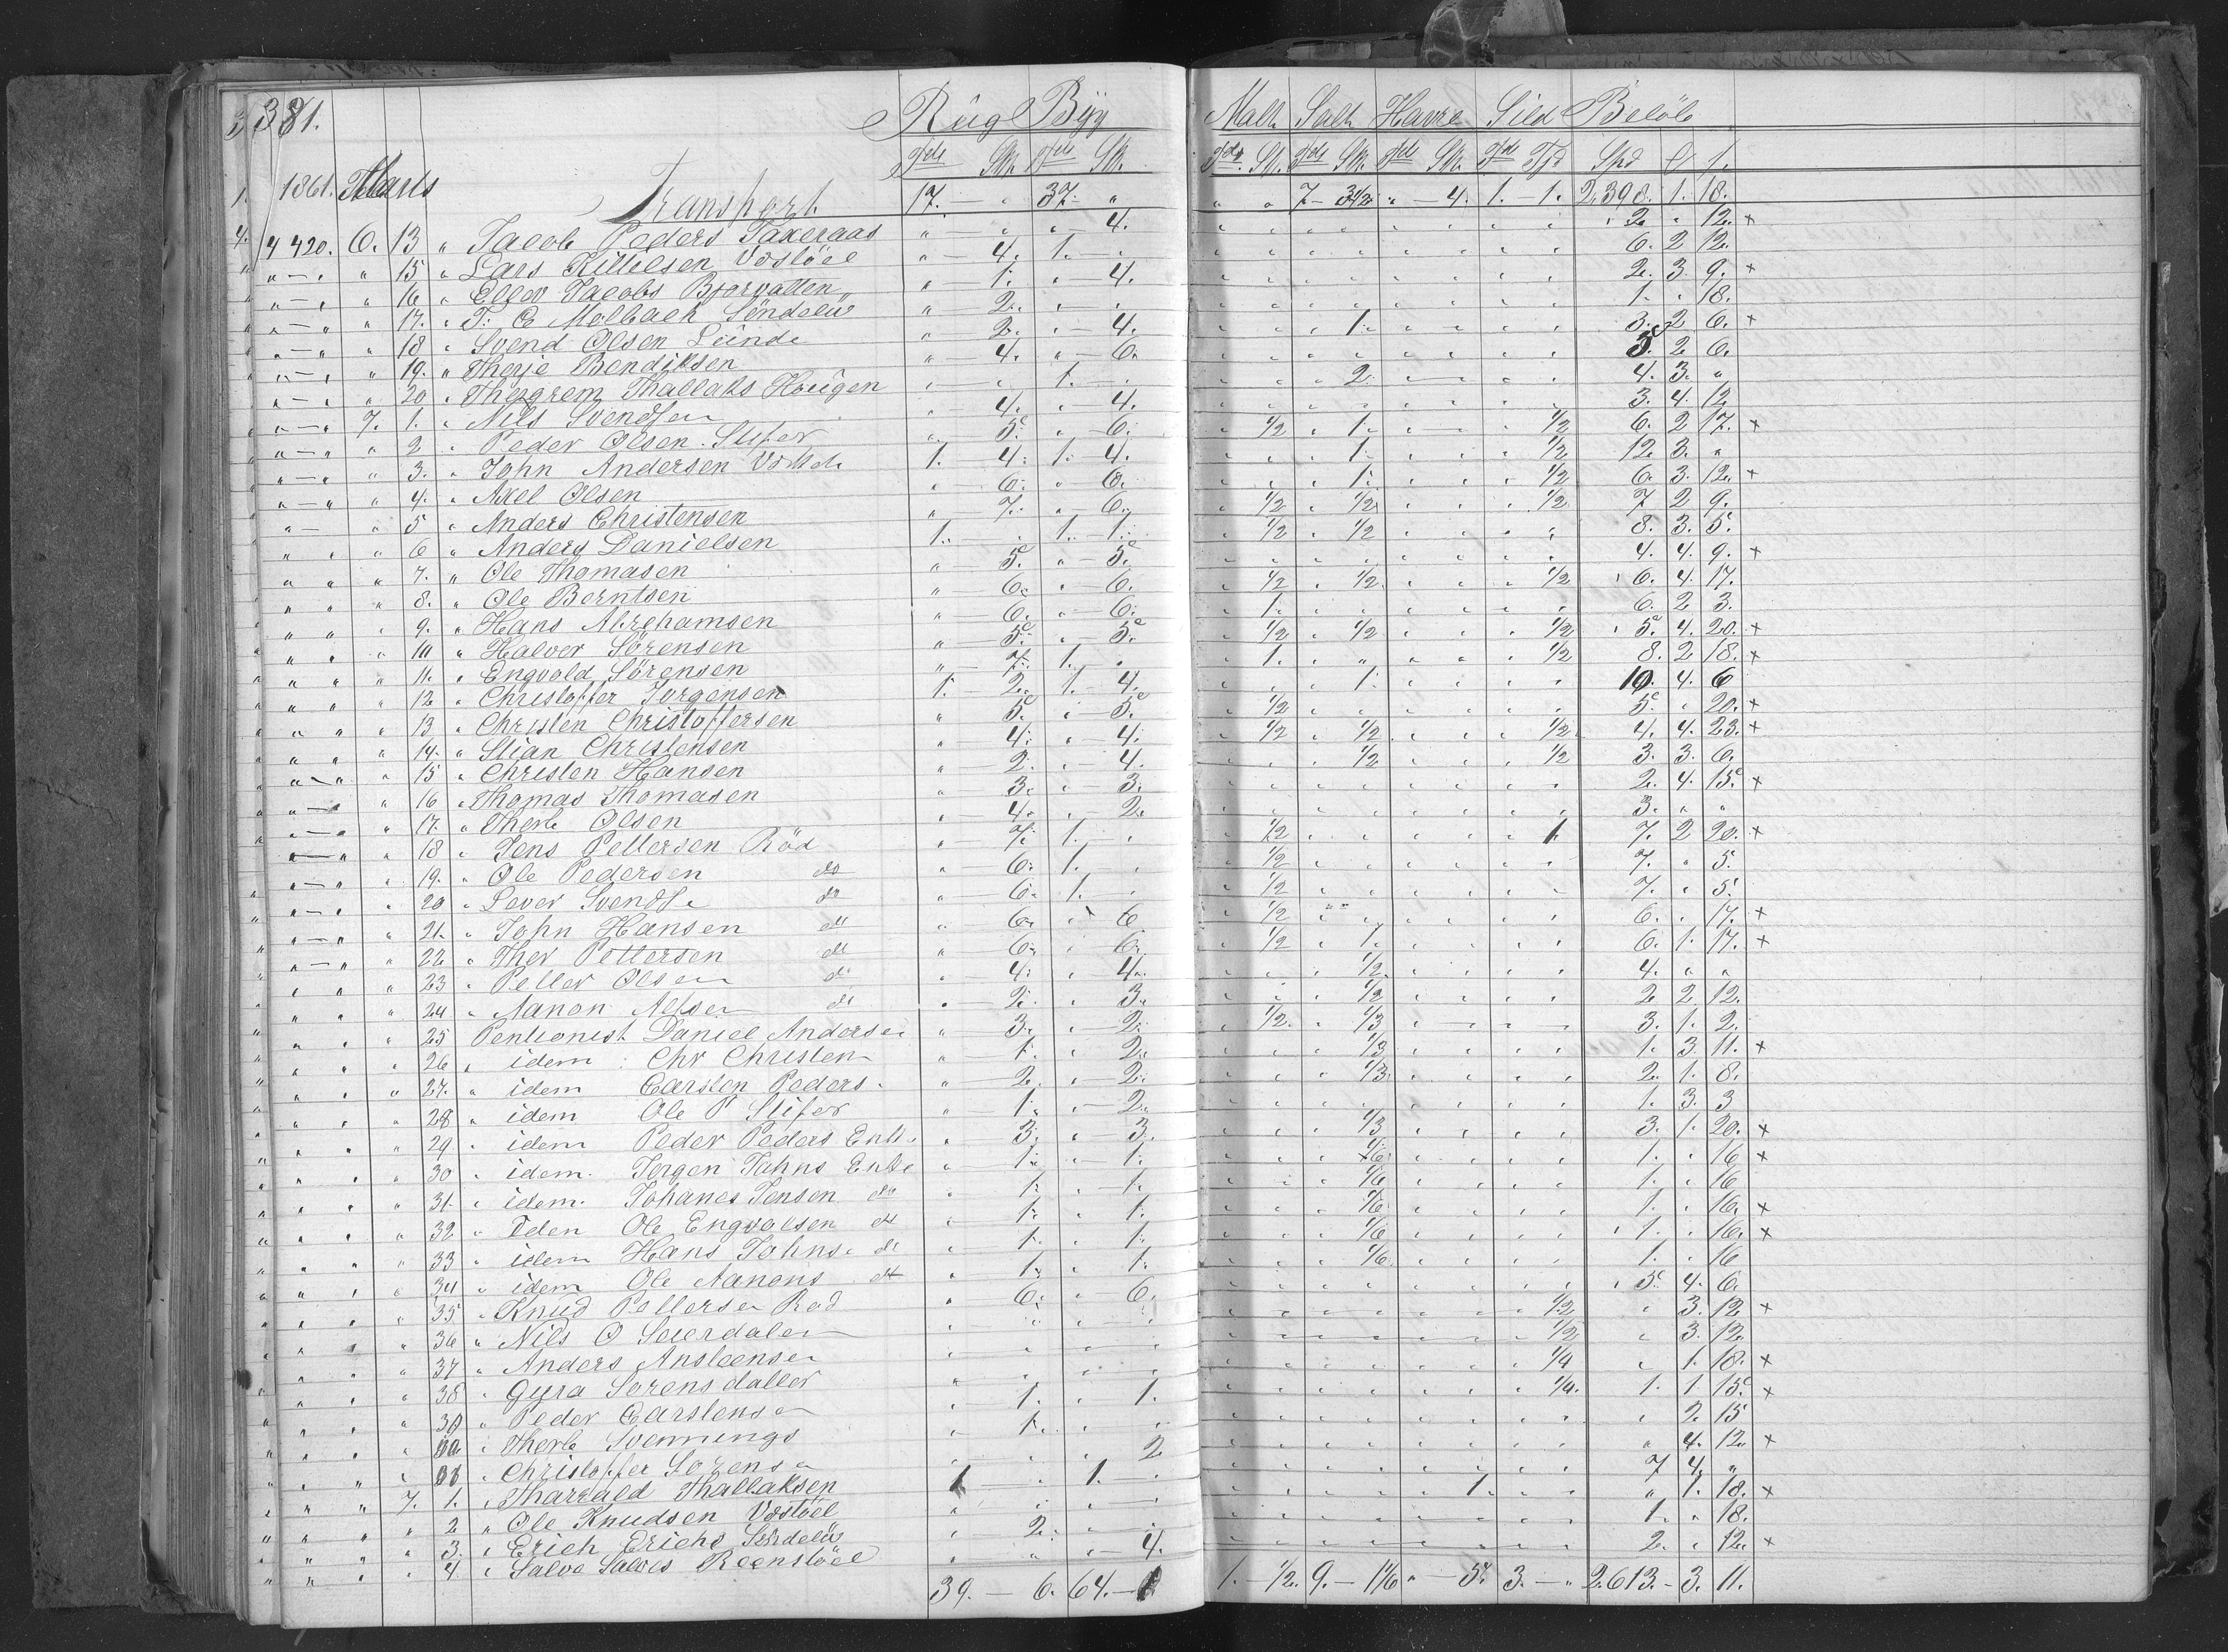 381.
Rüg Byg Malt Salt Havre Sild Beløb
Tdr Sk. Tdr Sk. Tdr. Sk. Tdr Sk. Tdr Sk. Tdr Fjd Spd
1861. Marts
Transport 17. — " 37. " " " 7 — 3 1/2 " — 4. 1. — 1. 2.398. 1. 18.
4 420. 6. 13 " Jacob Peders Taxeraas " " " — 4. 2. " 12. ×
" — " " 15 " Lars Kittilsen " — 4. 1. — 6. 2 12.
" — " " 16 " Ellev Jacobs " — 1. " 4. 2. 3. 9. ×
" — " " 17. " T. C Molbach Søndelü " 2. " 1. " 18.
" — " " 18 " Svend Olsen Lunde " 2. " — 4. 1. 3. 2 6. ×
" — " " 19. " Therje Bendiksen " 4. " — 6. 5. 2 6.
" — " " 20 " Thorgrem Thallaks Haugen " 1. 2. 4. 3. "
" — " 7. 1. " Nils Svendsen " 4. " 4. 3. 4. 12
" — " " 2 " Peder Olsen Slifer " 5. " — 6. " 1/2 " 1. 1/2 6. 2 17. ×
" — " " 3. " John Andersen 1. 4. 1. 4. 1. 1/2 12. 3. "
" — " " 4. " Axel Olsen " 6. " — 6. 1. 1/2 6. 3. 12. ×
" — " 5 " Anders Christensen " 7. " 6. " 1/2 " 1/2 1/2 7 2 9.
" " " 6 " Anders Danielsen 1. 1. — 1. " 1/2 " 1/2 8. 3. 5.
" " " 7. " Ole Thomasen " — 5. " 5. 4. 4. 9. ×
" " " 8. " Ole Berntsen " 6. " 6. " 1/2 " 1/2 1/2 6. 4. 17.
" " " 9. " Hans Abrehamsen " 6. " — 6. " 1. 6. 2 3.
" " " 10 " Halvor Sørensen " 5. " — 5. " 1/2 " 1/2 1/2 5. 4. 20. ×
" " " 11. " Engvold Sørensen " 7. 1. " 1. 1/2 8. 2 18. ×
" " " 12 " Christoffer Jorgensen 1. 2. 1. — 4. 1. 10. 4. 6
" " " 13 " Christen Christoffersen " 5. " 5. " 1/2 5. " 20. ×
" " " 14. " Stian Christensen " 4. " 4. " 1/2 " 1/2 1/2 4. 4. 23. ×
" " " 15 " Christen Hansen " 2. " 4. 1/2 1/2 3. 3. 6.
" — " " 16 " Thomas Thomasen " 3. " — 3. 2. 4. 15. ×
" — " " 17. " Therb Olsen " 4. " 2. 3. " "
" — " " 18 " Jens Pettersen Rød " 7. 1. " 1/2 1 7. 2 20. ×
" — " " 19. " Ole Pedersen do " 6. 1. " 1/2 7. " 5.
" — " " 20 " Sever Svends do " 6. 1. " 1/2 7. " 5.
" — " " 21. " John Hansen do " 6. " 6 " 1/2 6. " 17. ×
" — " " 22 " Ther Pettersen do " 6. " 6. " 1/2 " 1. 6. 1. 17. ×
" " " 23 " Petter Olsen do " 4. " 4. 1/2 4. " "
" " " 24 " Aanon Nilsen do " 2. " 3. 1/2 2 2 12.
" " " 25 Pentionist Daniel Andersen " 3. " 2. " 1/2. " 1/3 3. 1. 2.
" " " 26 " idem Chr Christen " 1. " 2. 1/3 1. 3. 11. ×
" " " 27. " idem Carsten Peders " 2. " 2. 1/3 2. 1. 8.
" " " 28 " idem Ole P Slifer " 1. " 2. 1. 3. 3
" " " 29 " idem Peder Peders Enke " 3. " 3. 1/3 3. 1. 20. ×
" " " 30 " idem Jorgen Johns Enke " 1. " 1. 1/6 1. " 16 ×
" " " 31. " idem. Johanes Jensen do " 1. " 1. 1/6 1. " 16
" " " 32 " Iden Ole Engvolsen do " 1. " 1. 1/6 1. " 16. ×
" " " 33 " idem Hans Johns do " 1. " 1. 1/6 1. " 16. ×
" " " 34 " idem Ole Aanons do " 1. " 1. 1/6 1. " 16
" " " 35 " Knud Pettersen Rød " 6. " 6. 5. 4. 6.
" " " 36 " Nils O 1/2 " 3. 12 ×
" " " 37 " Anders Ansteensen 1/2 " 3. 12.
" " " 38 " Gyra Sorensdatter 1/4 " 1. 18. ×
" " " 39 " Peder Carstensen " 1. " 1. 1/4. 1. 1. 15. ×
" " " " Therb Svennings " 1. " " 2. 15
" " " " Christoffer Sorensen 2 " 4. 12. ×
" " 7. 1. " Tharrald Thallaksen 1 1. 7 4. "
" " " 2 " Ole Knudsen 1. " 1. 18. ×
" " " 3. " Erich Erichs Søndelü " 2. 1. " 18.
" " " 4 " Salve Salves " " — 4. 2. " 12. ×
39. — 6. 64. — 1. — 1/2. 9. — 1 1/6 " — 5. 3. — " 2.613. — 3. 11.